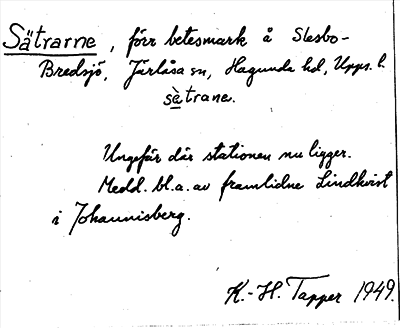 Sätrarne, förr betesmark å Slesbo-
Bredsjö, Järlåsa sn, Hagunda hd, Upps. l.
sὲtrane.
Ungefär där stationen nu ligger.
Medd. bl.a. av framlidne Lindkvist
i Johannisberg.
K.-H. Tapper 1949.